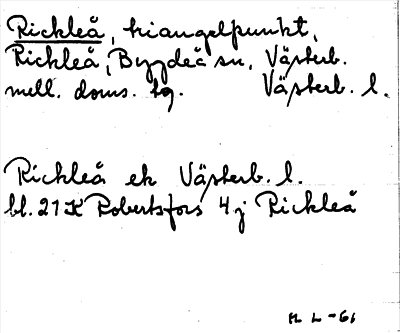 Rickleå, triangelpunkt,
Rickleå, Bygdeå sn, Västerb.
mell. doms. tg. Västerb. l.
Rickleå ek Västerb. l.
bl. 21K Robertsfors 4j Rickleå
H L -61